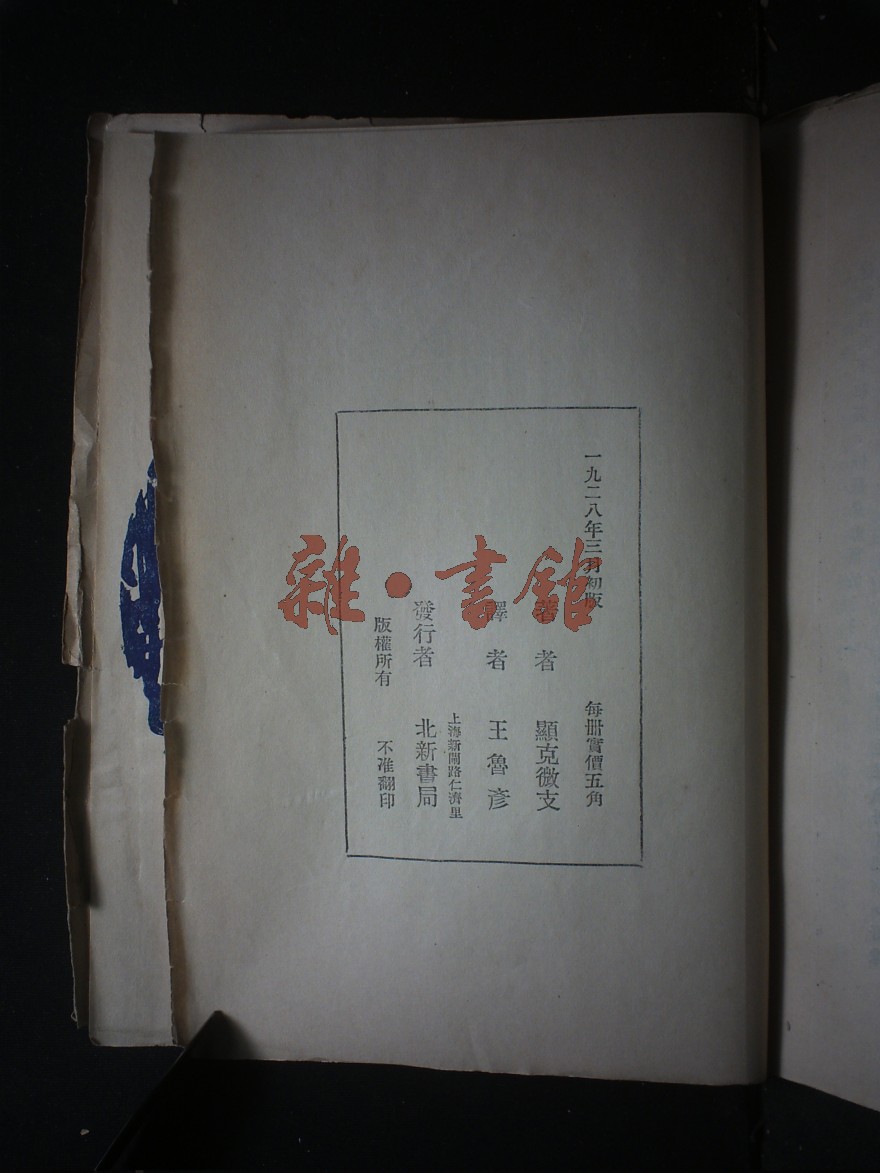 一九二八年三月初版
每冊實價五角
著者 顯克微支
譯者 王魯彥
上海新閘路仁濟里
發行者 北新書局
版權所有 不准翻印
雜·書館